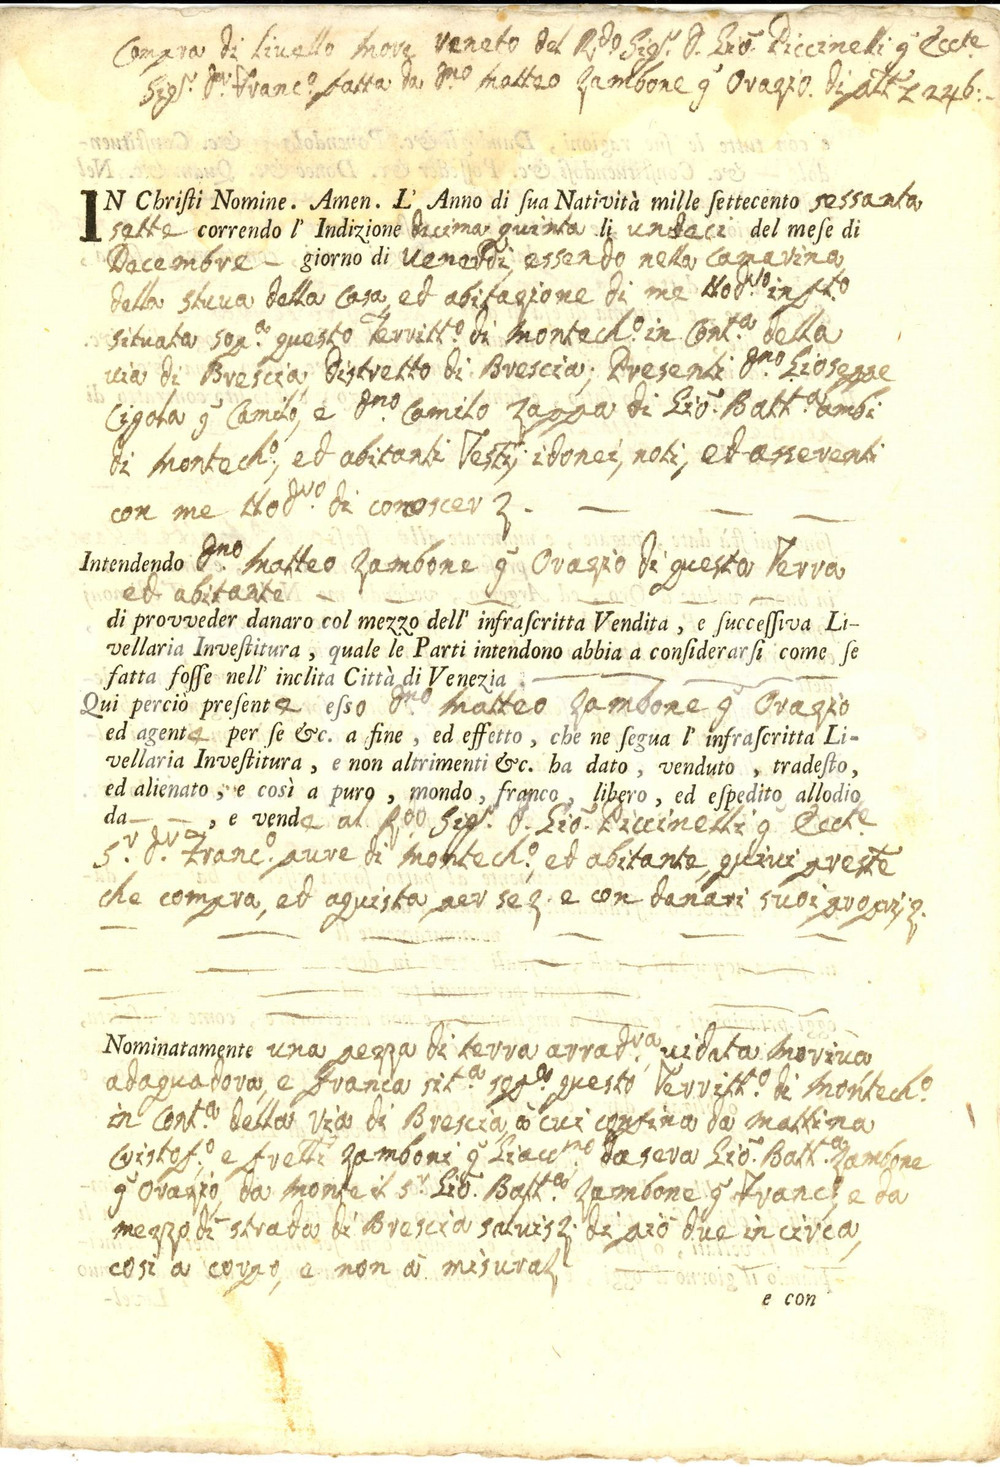 Compra di livello more veneto del R.do Sig.r D. Gio: Piccinelli q.m Eccte
Sig.r D.r Franc.o fatta da d.no Matteo Zambone q.m Orazio di £ 246:-
IN Chriſti Nomine. Amen. L' Anno di ſua Natività mille ſettecento sessanta
sette correndo l' Indizione decima quinta li undeci del meſe di
Decembre - giorno di Venerdì, essendo nella camarina
della stuua della casa, ed abitazione di me Nod.ro infr.to
situata sop.a questo Territt.o di Montech.o in Cont.a della
via di Brescia, Distretto di Brescia; Presenti d.no Gioseppe
Cigola q.m Camilo, e d.no Camilo Zappa di Gio: Batt.a ambi
di Montech.o, ed abitanti Testi, idonei, noti, ed asserenti
con me Nod.ro di conoscer
Intendendo d.no Matteo Zambone q.m Orazio di questa Terra
ed abitante
di provveder danaro col mezzo dell' infraſcritta Vendita, e ſucceſſiva Li-
vellaria Inveſtitura, quale le Parti intendono abbia a conſiderarſi come ſe
fatta foſſe nell' inclita Città di Venezia.
Qui perciò preſente esso d.no Matteo Zambone q.m Orazio
ed agente per ſe &c. a fine, ed effetto, che ne ſegua l' infraſcritta Li-
vellaria Inveſtitura, e non altrimenti &c. ha dato, venduto, tradeſto,
ed alienato, e così a puro, mondo, franco, libero, ed eſpedito allodio
da - -, e vende al R.do Sig.r D. Gio: Piccinelli q.m Eccte
S.r D.r Franc.o pure di Montech.o, ed abitante, quiui preste
che compra, ed aquista per se e con danari suoi proprij
Nominatamente una pezza di terra arrad.va, uidata moriua
adaquadora, e franca sit.a sop.a questo Territt.o di Montech.o
in Cont.a della Via di Brescia, à cui confina da mattina
Cristof.o e frelli Zamboni q.m Giacmo da sera Gio: Batt.a Zambone
q.m Orazio, da Monte il S.r Gio: Batt.a Zambone q.m Franc.o, e da
mezzo di strada di Brescia saluis di piò due in circa,
così a corpo, e non à misura
e con